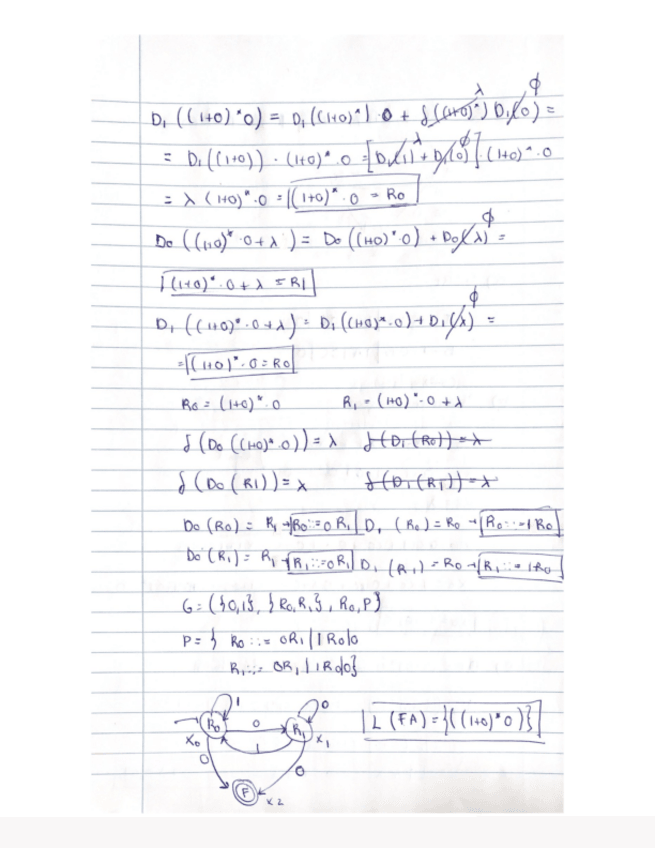 D₁ ((1+0)*0) = D₁((1+0)*) 0 + δ((1+0)*) D₁(0) =
λ φ
= D₁((1+0)) · (1+0)* · 0 = [D₁(1) + D₁(0)] · (1+0)* · 0
λ φ
= λ (1+0)* · 0 = (1+0)* · 0 = R0
D0 ((1+0)* · 0 + λ) = D0 ((1+0)* 0) + D0(λ) =
φ
(1+0)* · 0 + λ = R1
D₁ ((1+0)* · 0 + λ) = D₁((1+0)* · 0) + D₁(λ) =
φ
= (1+0)* · 0 = R0
R0 = (1+0)* · 0 R₁ = (1+0)* · 0 + λ
δ(D0((1+0)* · 0)) = λ δ(D₁(R0)) = λ
δ(D0(R1)) = λ δ(D₁(R₁)) = λ
D0(R0) = R₁ → R0 ::= 0 R₁ D₁ (R0) = R0 → R0 ::= 1 R0
D0(R₁) = R₁ → R₁ ::= 0R₁ D₁ (R₁) = R0 → R₁ ::= 1R0
G = ({0,1}, {R0,R₁}, R0, P)
P = { R0 ::= 0R₁ | 1R0|0
R₁ ::= 0R₁ | 1R0|0}
1 0
R0 0 R₁
L (FA) = {((1+0)*0)}
X0 1 X₁
0 0
F
X2